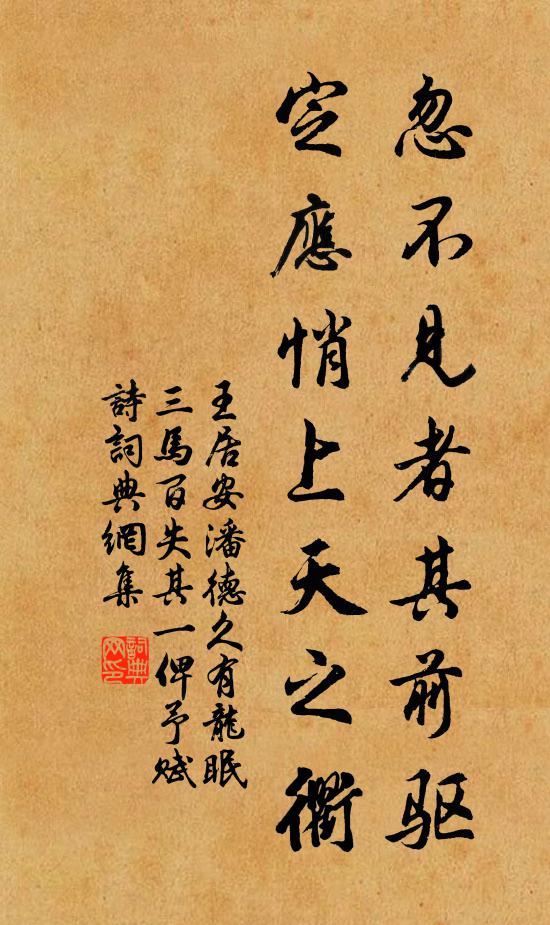 忽不见者其前驱
定應悄上天之衢
王居安潘德久有龍眠
三馬百失其一俾予赋
詩詞典網集
詞典
网印